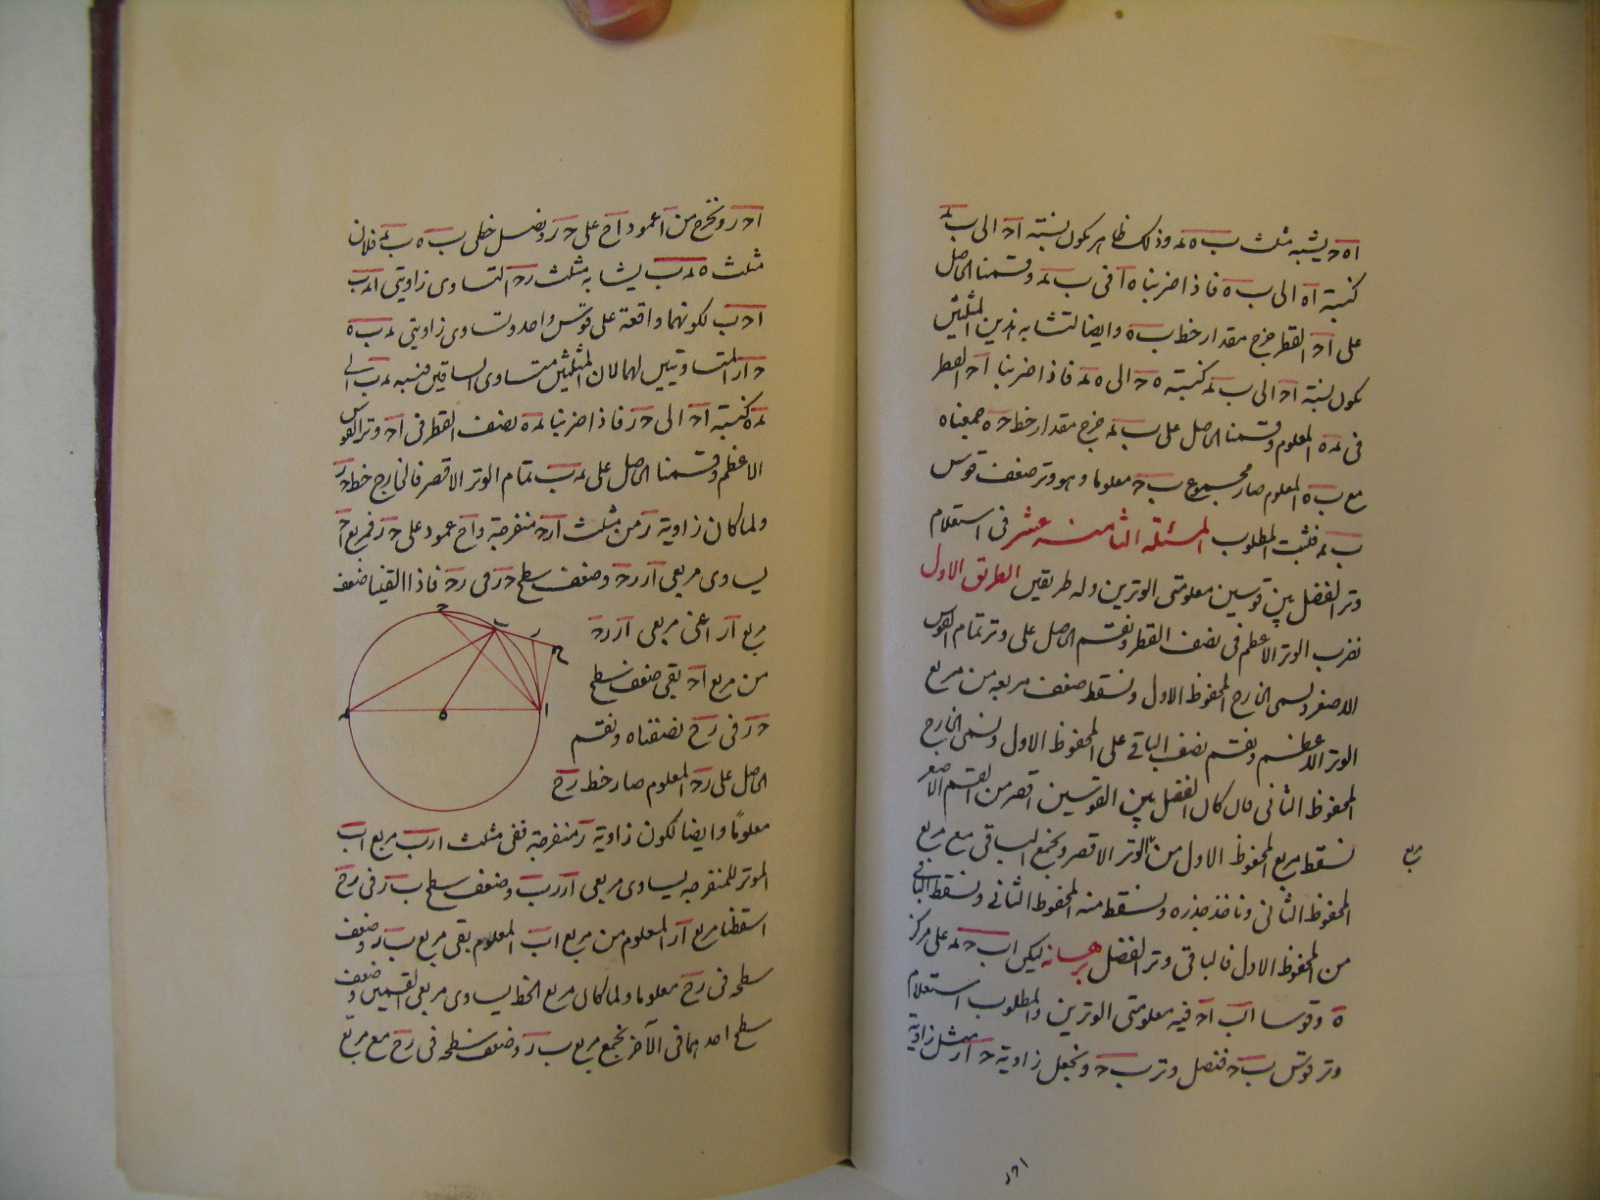 اه ح يشبه مثلث ب ه ء وذلك ظاهر يكون نسبة اح الى ب ء
كنسبة اه الى ب ه فاذا ضربنا ه ا فى ب ء وقسمنا الحاصل
على اح القطر خرج مقدار خط ب ه وايضا لتشابه هذين المثلثين
يكون نسبة اح الى ب ء كنسبة ه ح الى ه ء فاذا ضربنا اح القطر
فى ء ه المعلوم وقسمنا الحاصل على ب ء خرج مقدار خط ح ه جمعناه
مع ب ه المعلوم صار مجموع ب ح معلوما وهو وتر ضعف قوس
ب ء فثبت المطلوب المسئلة الثامنة عشر فى استعلام
وتر الفضل بين قوسين معلومتى الوترين وله طريقين الطريق الاول
نضرب الوتر الاعظم فى نصف القطر ونقسم الحاصل على وتر تمام القوس
الاصغر ونسمى الخارج المحفوظ الاول ونسقط ضعف مربعه من مربع
الوتر الاعظم ونقسم نصف الباقى على المحفوظ الاول ونسمى الخارج
المحفوظ الثانى فان كان الفضل بين القوسين اقصر من القسم الاصغر
نسقط مربع المحفوظ الاول من الوتر الاقصر ونجمع الباقى مع مربع
مربع
المحفوظ الثانى وناخذ جذره ونسقط منه المحفوظ الثانى ونسقط الباقى
من المحفوظ الاول فالباقى وتر الفضل برهانه ليكن اب ح ء على مركز
ه وقوسا اب اح فيه معلومتى الوترين والمطلوب استعلام
وتر قوس ب ح فنصل وتر ب ح ونجعل زاوية ح ار مثل زاوية
اح ر
اح ر ونخرج من ا عمود اح على ح ر ونصل خطى ب ه ب ء فلان
مثلث ه ء ب يشابه مثلث ر ح ا لتساوى زاويتى ا ء ب
اح ب لكونهما واقعة على قوس واحد وتساوى زاويتى ء ب ه
ح ار المتساويتين لهما لان المثلثين متساوى الساقين فنسبه ء ب الى
ء ه كنسبة اح الى ح ر فاذا ضربنا ء ه نصف القطر فى اح وتر القوس
الاعظم وقسمنا الحاصل على ء ب تمام الوتر الاقصر فالخارج خط ح ر
ولما كان زاوية ر من مثلث ار ح منفرجة واح عمود على ح ر فمربع اح
يساوى مربعى ار ر ح وضعف سطح ح ر فى ر ح فاذا القينا ضعف
مربع ار اعنى مربعى ار ر ح
من مربع اح بقى ضعف سطح
ح ر فى ر ح نصفناه ونقسم
الحاصل على ر ح المعلوم صار خط ر ح
معلومًا وايضا لكون زاوية ر منفرجة ففى مثلث ار ب مربع اب
الموتر للمنفرجه يساوى مربعى ار ر ب وضعف سطح ب ر فى ر ح
اسقطنا مربع ار المعلوم من مربع اب المعلوم بقى مربع ب ر وضعف
سطحه فى ر ح معلوما ولما كان مربع الخط يساوى مربعى القسمين وضعف
سطح احدهما فى الآخر نجمع مربع ب ر وضعف سطحه فى ر ح مع مربع